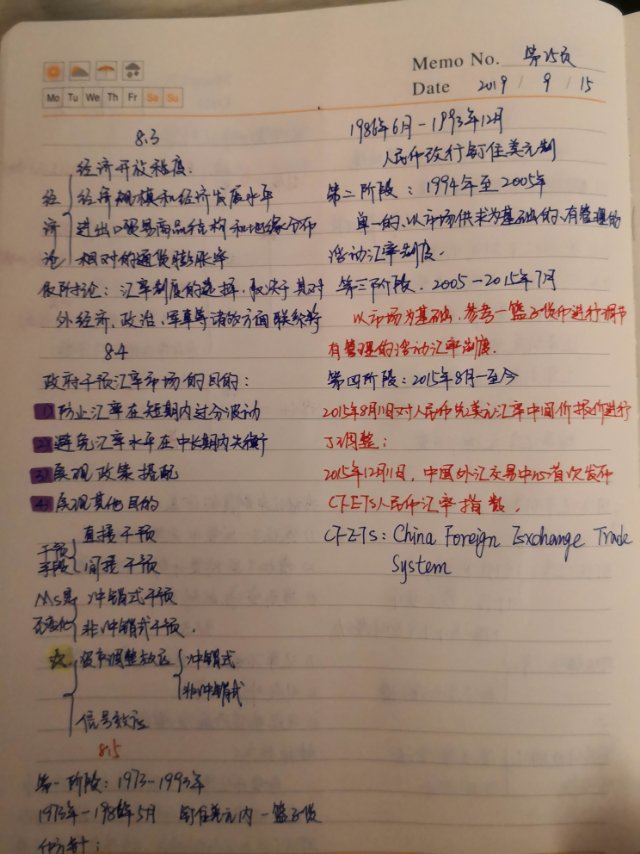 Memo No. 第25页
Date 2019 / 9 / 15
Mo Tu We Th Fr Sa Su
8.3
经济开放程度.
经济规模和经济发展水平
进出口贸易商品结构和地缘分布
相对的通货膨胀率
经济论
依附论：汇率制度的选择，取决于其对
外经济、政治、军事等诸多方面联系
8.4
政府干预汇率市场的目的：
1) 防止汇率在短期内过分波动
2) 避免汇率水平在中长期内失衡
3) 实现政策搭配
4) 实现其他目的
干预手段
直接干预
间接干预
Ms是否变化
冲销式干预
非冲销式干预.
效
资产调整效应
冲销式
非冲销式
信号效应
8.5
第一阶段：1973-1993年
1973年-1986年5月 钉住美元内一篮子货
1986年6月-1993年12月
人民币改行钉住美元制
第二阶段：1994年至2005年
单一的、以市场供求为基础的、有管理的
浮动汇率制度.
第三阶段. 2005-2015年7月
以市场为基础，参考一篮子货币进行调节
有管理的浮动汇率制度.
第四阶段：2015年8月-至今
2015年8月11日对人民币兑美元汇率中间价报价进行
了调整；
2015年12月11日，中国外汇交易中心首次发布
CFETS人民币汇率指数.
CFETS: China Foreign Exchange Trade
System